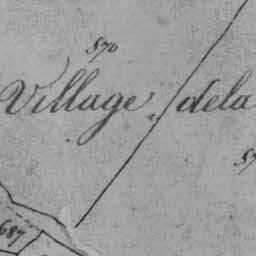 570
Village dela
687